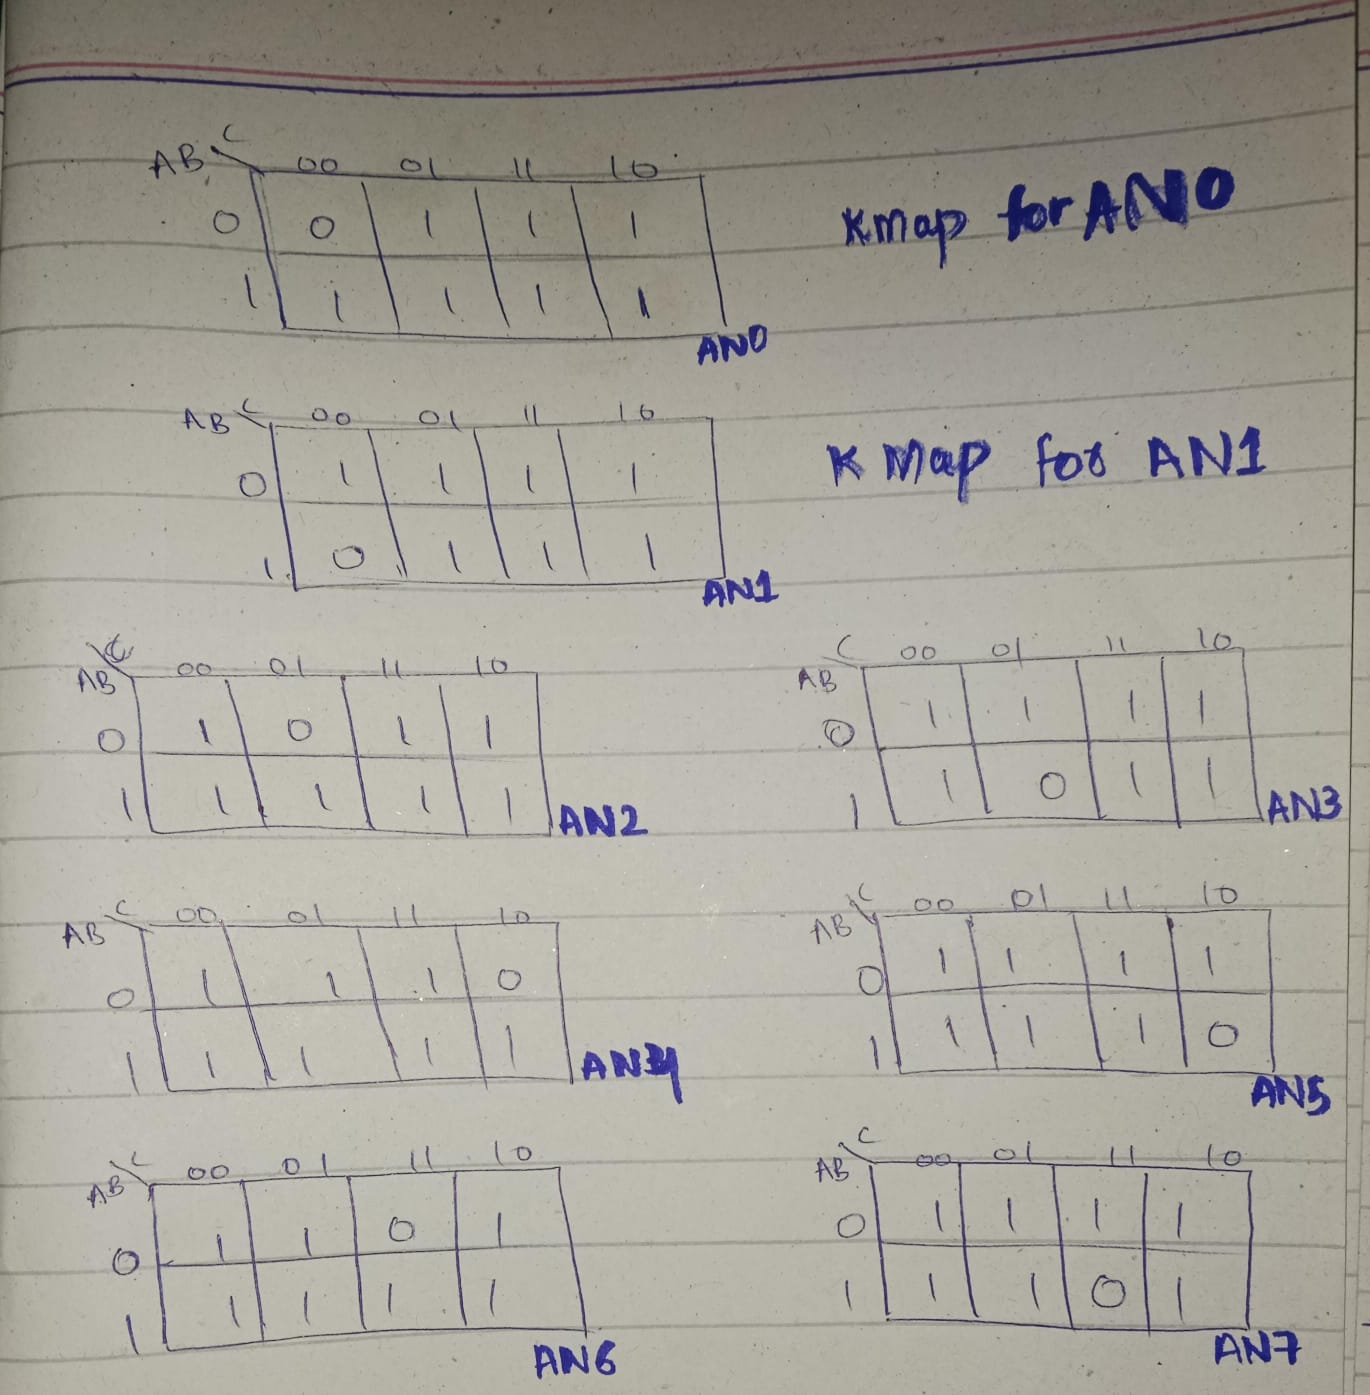 AB C 00 01 11 10
0 0 1 1 1 Kmap for AN0
1 1 1 1 1
AN0
AB C 00 01 11 10
0 1 1 1 1 K Map for AN1
1 0 1 1 1
AN1
AB C 00 01 11 10
0 1 0 1 1
1 1 1 1 1 AN2
AB C 00 01 11 10
0 1 1 1 1
1 1 0 1 1 AN3
AB C 00 01 11 10
0 1 1 1 0
1 1 1 1 1 AN4
AB C 00 01 11 10
0 1 1 1 1
1 1 1 1 0
AN5
AB C 00 01 11 10
0 1 1 0 1
1 1 1 1 1
AN6
AB C 00 01 11 10
0 1 1 1 1
1 1 1 0 1
AN7